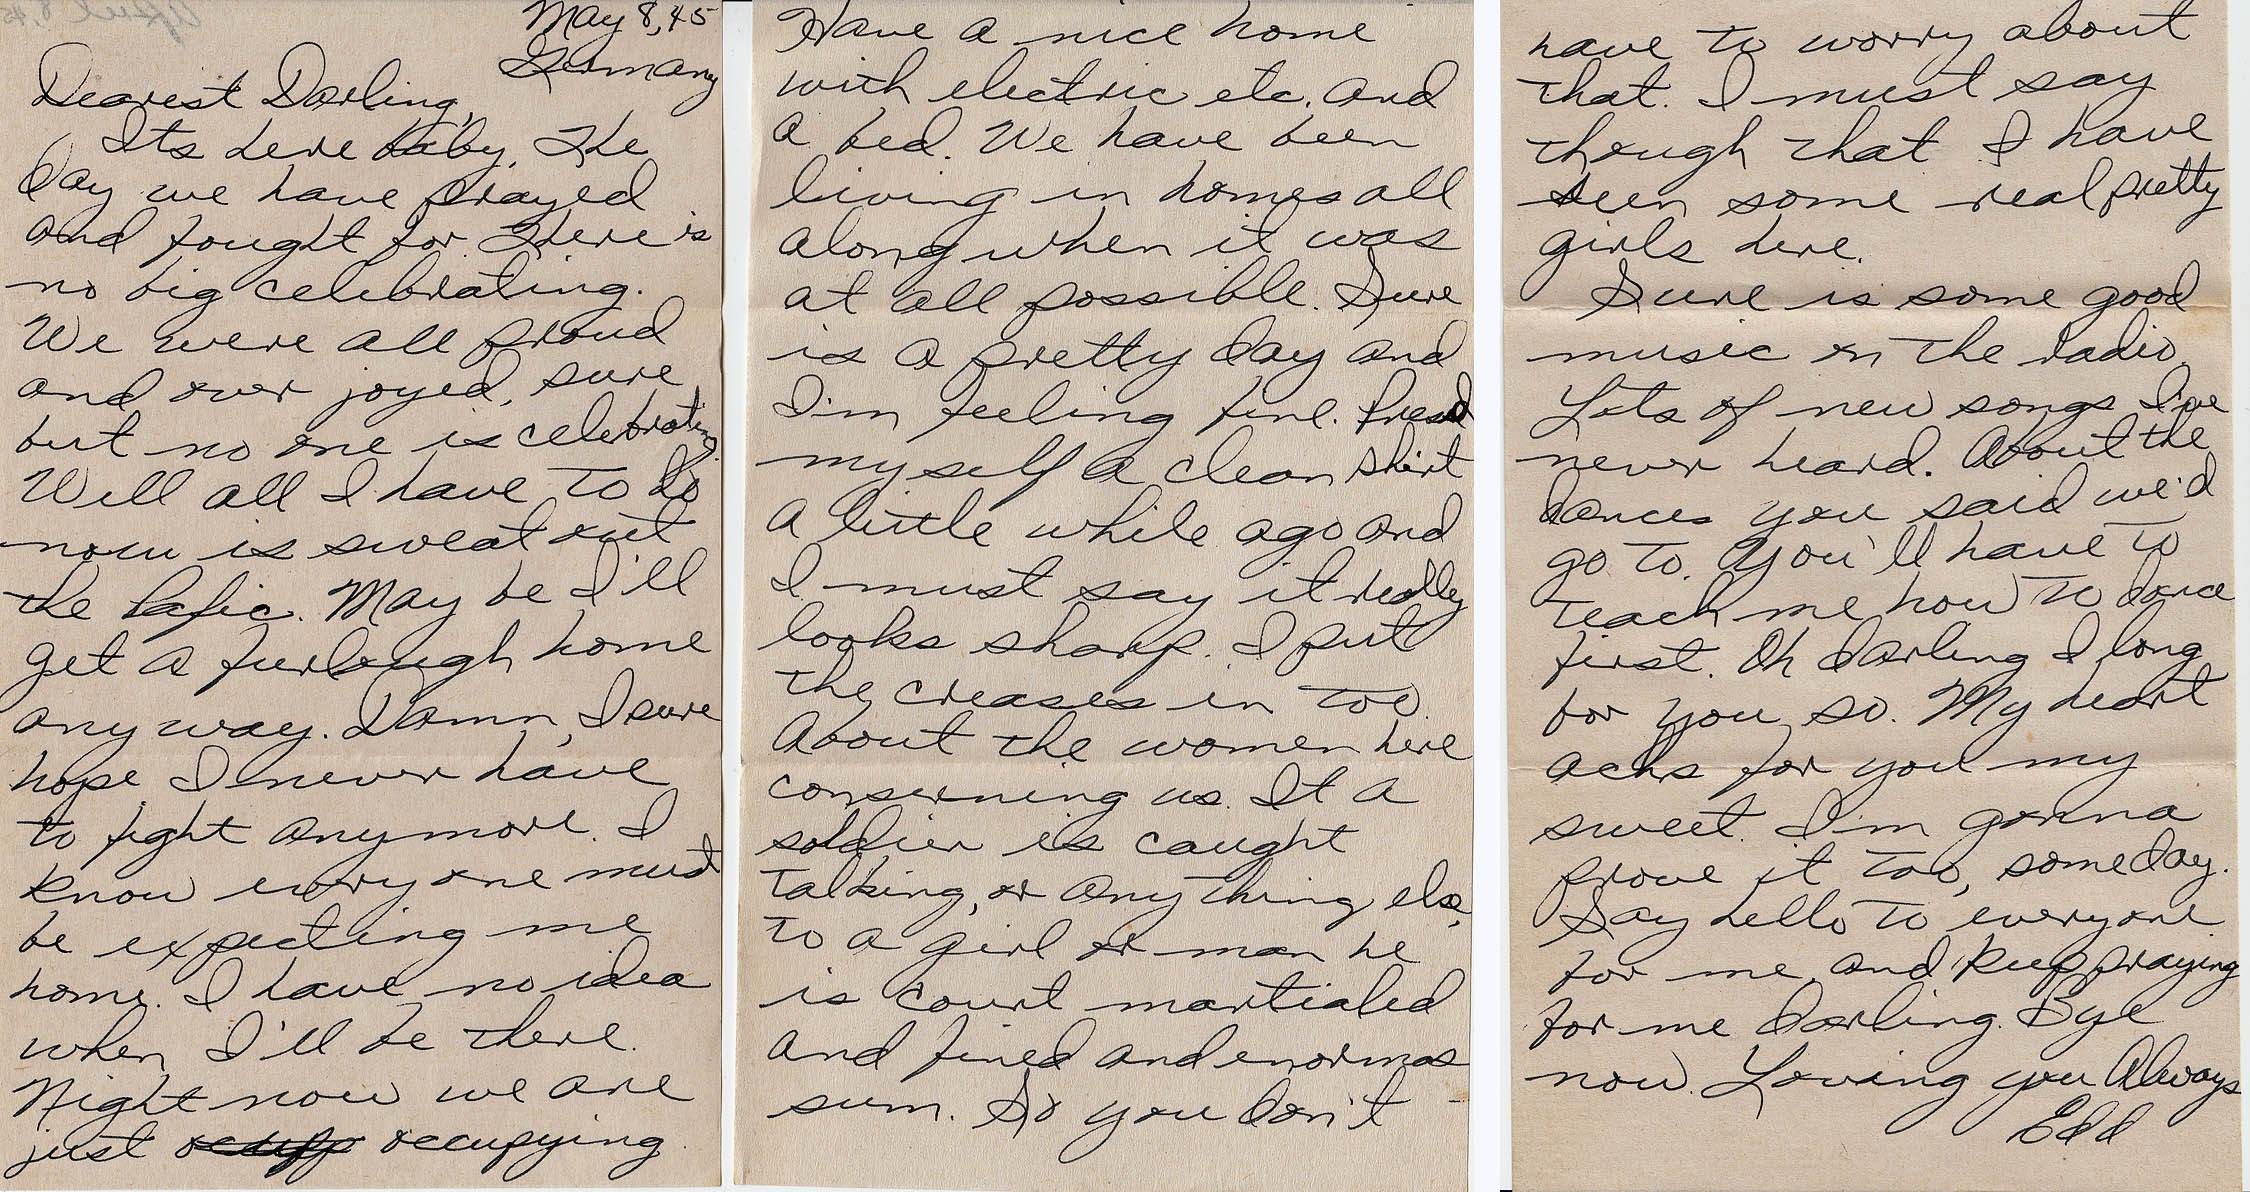 May 8, 45
Germany
Dearest Darling,
Its here baby. The
day we have prayed
and fought for. There is
no big celebrating.
We were all proud
and over joyed, sure
but no one is celebrating.
Well all I have to do
now is sweat out
the Pafic. May be I'll
get a furlough home
any way. Damn, I sure
hope I never have
to fight anymore. I
know every one must
be expecting me
home. I have no idea
when I'll be there.
Right now we are
just occupying.
Have a nice home
with electric etc. and
a bed. We have been
living in homes all
along when it was
at all possible. Sure
is a pretty day and
I'm feeling fine. Pressed
myself a clean shirt
a little while ago and
I must say it really
looks sharp. I put
the creases in too.
About the women here
conserning us. If a
soldier is caught
talking, or any thing else,
to a girl or man he
is court martialed
and fined and enormas
sum. So you don't
have to worry about
that. I must say
though that I have
seen some real pretty
girls here.
Sure is some good
music on the radio.
Lots of new songs I've
never heard. About the
dances you said we'd
go to. You'll have to
teach me how to dance
first. Oh darling I long
for you so. My heart
achs for you my
sweet. I'm gonna
prove it too, someday.
Say hello to everyone
for me and keep praying
for me darling. Bye
now. Loving you Always
Edd